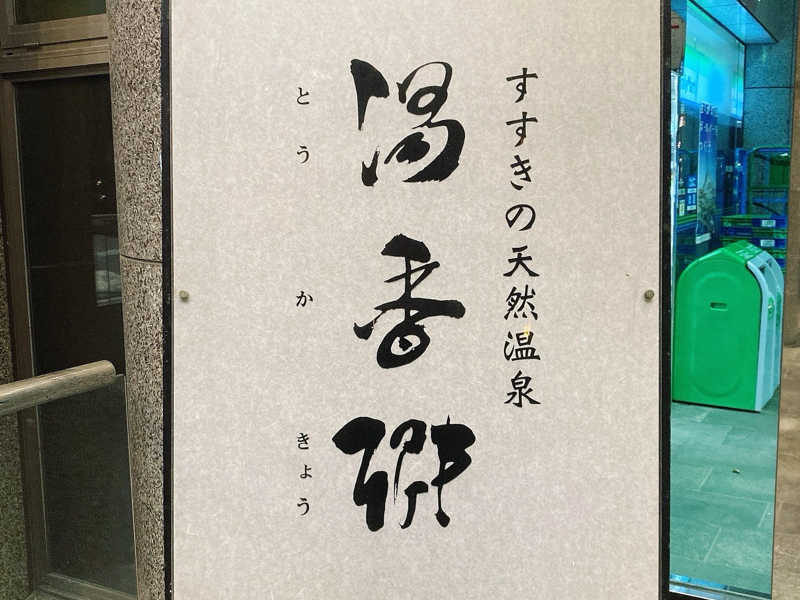 すすきの天然温泉
湯香郷
とう か きょう